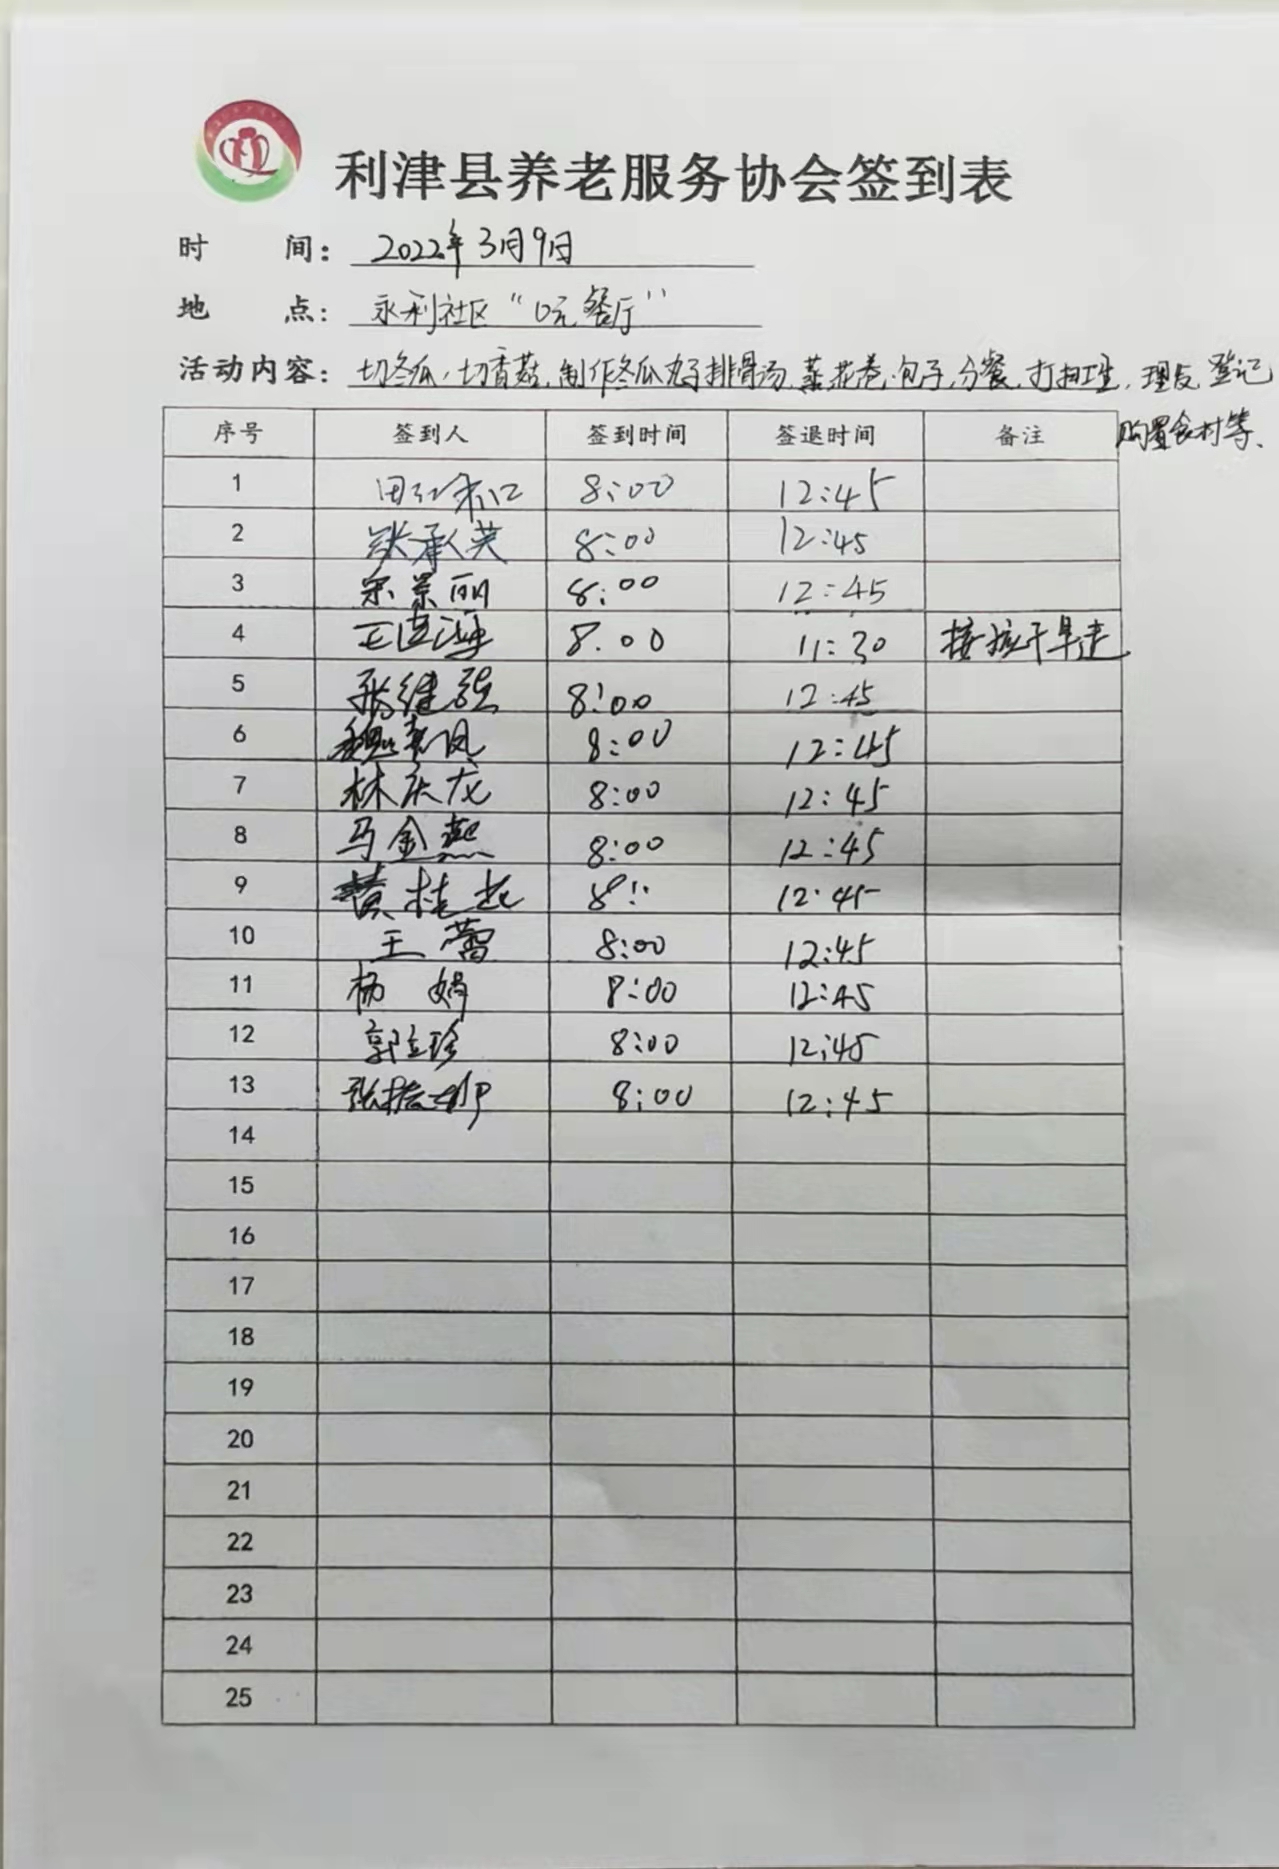 利津县养老服务协会签到表
时 间： 2022年3月9日
地 点： 永利社区“0元餐厅”
活动内容： 切冬瓜、切香菇、制作冬瓜丸子排骨汤、蒸花卷、包子、分餐、打扫卫生、理发、登记
购置食材等、
序号 签到人 签到时间 签退时间 备注
1 8:00 12:45
2 张承英 8:00 12:45
3 宋景丽 8:00 12:45
4 8.00 11:30 接孩子早走
5 张继强 8:00 12:45
6 8:00 12:45
7 林庆龙 8:00 12:45
8 马金燕 8:00 12:45
9 黄桂 8:: 12:45
10 王蕾 8:00 12:45
11 杨娟 8:00 12:45
12 郭立珍 8:00 12:45
13 8:00 12:45
14
15
16
17
18
19
20
21
22
23
24
25